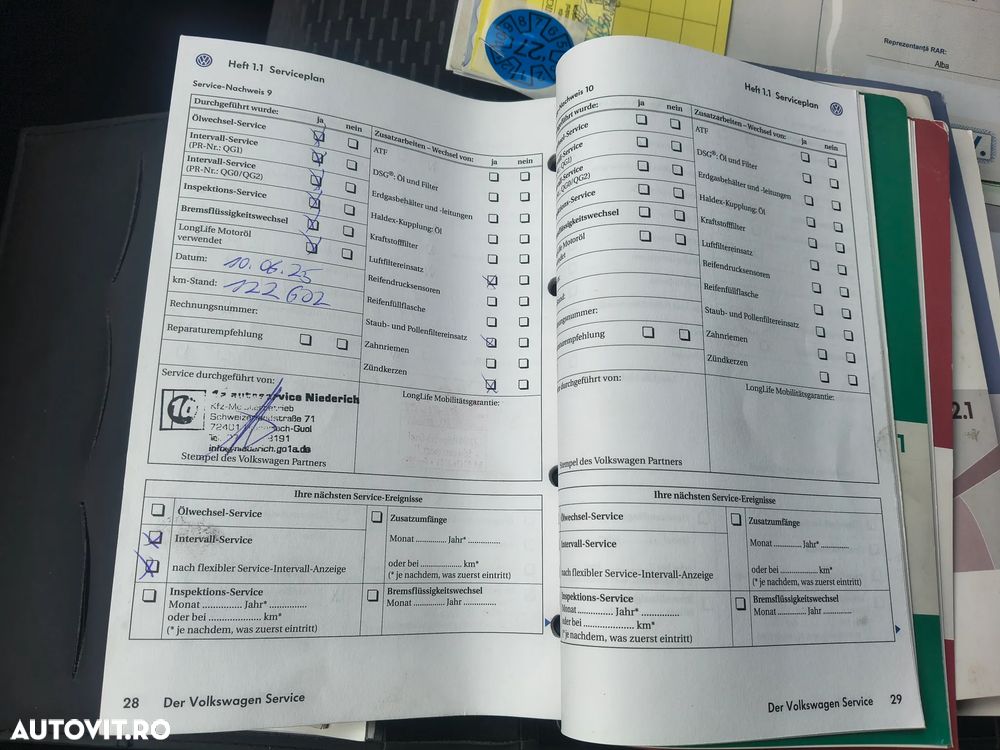 Reprezentanță RAR:
Alba
Heft 1.1 Serviceplan
Service-Nachweis 9
Durchgeführt wurde:
ja
nein
Ölwechsel-Service
Intervall-Service
(PR-Nr.: QG1)
Intervall-Service
(PR-Nr.: QG0/QG2)
Inspektions-Service
Bremsflüssigkeitswechsel
LongLife Motoröl
verwendet
Datum: 10.06.25
km-Stand: 122 602
Rechnungsnummer:
Reparaturempfehlung
Zusatzarbeiten – Wechsel von:
ja
nein
ATF
DSG®: Öl und Filter
Erdgasbehälter und -leitungen
Haldex-Kupplung: Öl
Kraftstofffilter
Luftfiltereinsatz
Reifendrucksensoren
Reifenfüllflasche
Staub- und Pollenfiltereinsatz
Zahnriemen
Zündkerzen
Service durchgeführt von:
LongLife Mobilitätsgarantie:
autoservice Niederich
72401
info@niederich.go1a.de
Stempel des Volkswagen Partners
Ihre nächsten Service-Ereignisse
Ölwechsel-Service
Intervall-Service
nach flexibler Service-Intervall-Anzeige
Inspektions-Service
Monat .............. Jahr* ..............
oder bei .................... km*
(* je nachdem, was zuerst eintritt)
Zusatzumfänge
Monat .............. Jahr* ..............
oder bei .................... km*
(* je nachdem, was zuerst eintritt)
Bremsflüssigkeitswechsel
Monat .............. Jahr* ..............
28 Der Volkswagen Service
Heft 1.1 Serviceplan
Nachweis 10
wurde:
ja
nein
-Service
-Service
QG1)
-Service
QG0/QG2)
-Service
Motoröl
Zusatzarbeiten – Wechsel von:
ja
nein
ATF
DSG®: Öl und Filter
Erdgasbehälter und -leitungen
Haldex-Kupplung: Öl
Kraftstofffilter
Luftfiltereinsatz
Reifendrucksensoren
Reifenfüllflasche
Staub- und Pollenfiltereinsatz
Zahnriemen
Zündkerzen
durchgeführt von:
LongLife Mobilitätsgarantie:
Stempel des Volkswagen Partners
Ihre nächsten Service-Ereignisse
Ölwechsel-Service
Intervall-Service
nach flexibler Service-Intervall-Anzeige
Inspektions-Service
Monat .............. Jahr* ..............
oder bei .................... km*
(* je nachdem, was zuerst eintritt)
Zusatzumfänge
Monat .............. Jahr* ..............
oder bei .................... km*
(* je nachdem, was zuerst eintritt)
Bremsflüssigkeitswechsel
Monat .............. Jahr* ..............
Der Volkswagen Service 29
2.1
1
AUTOVIT.RO